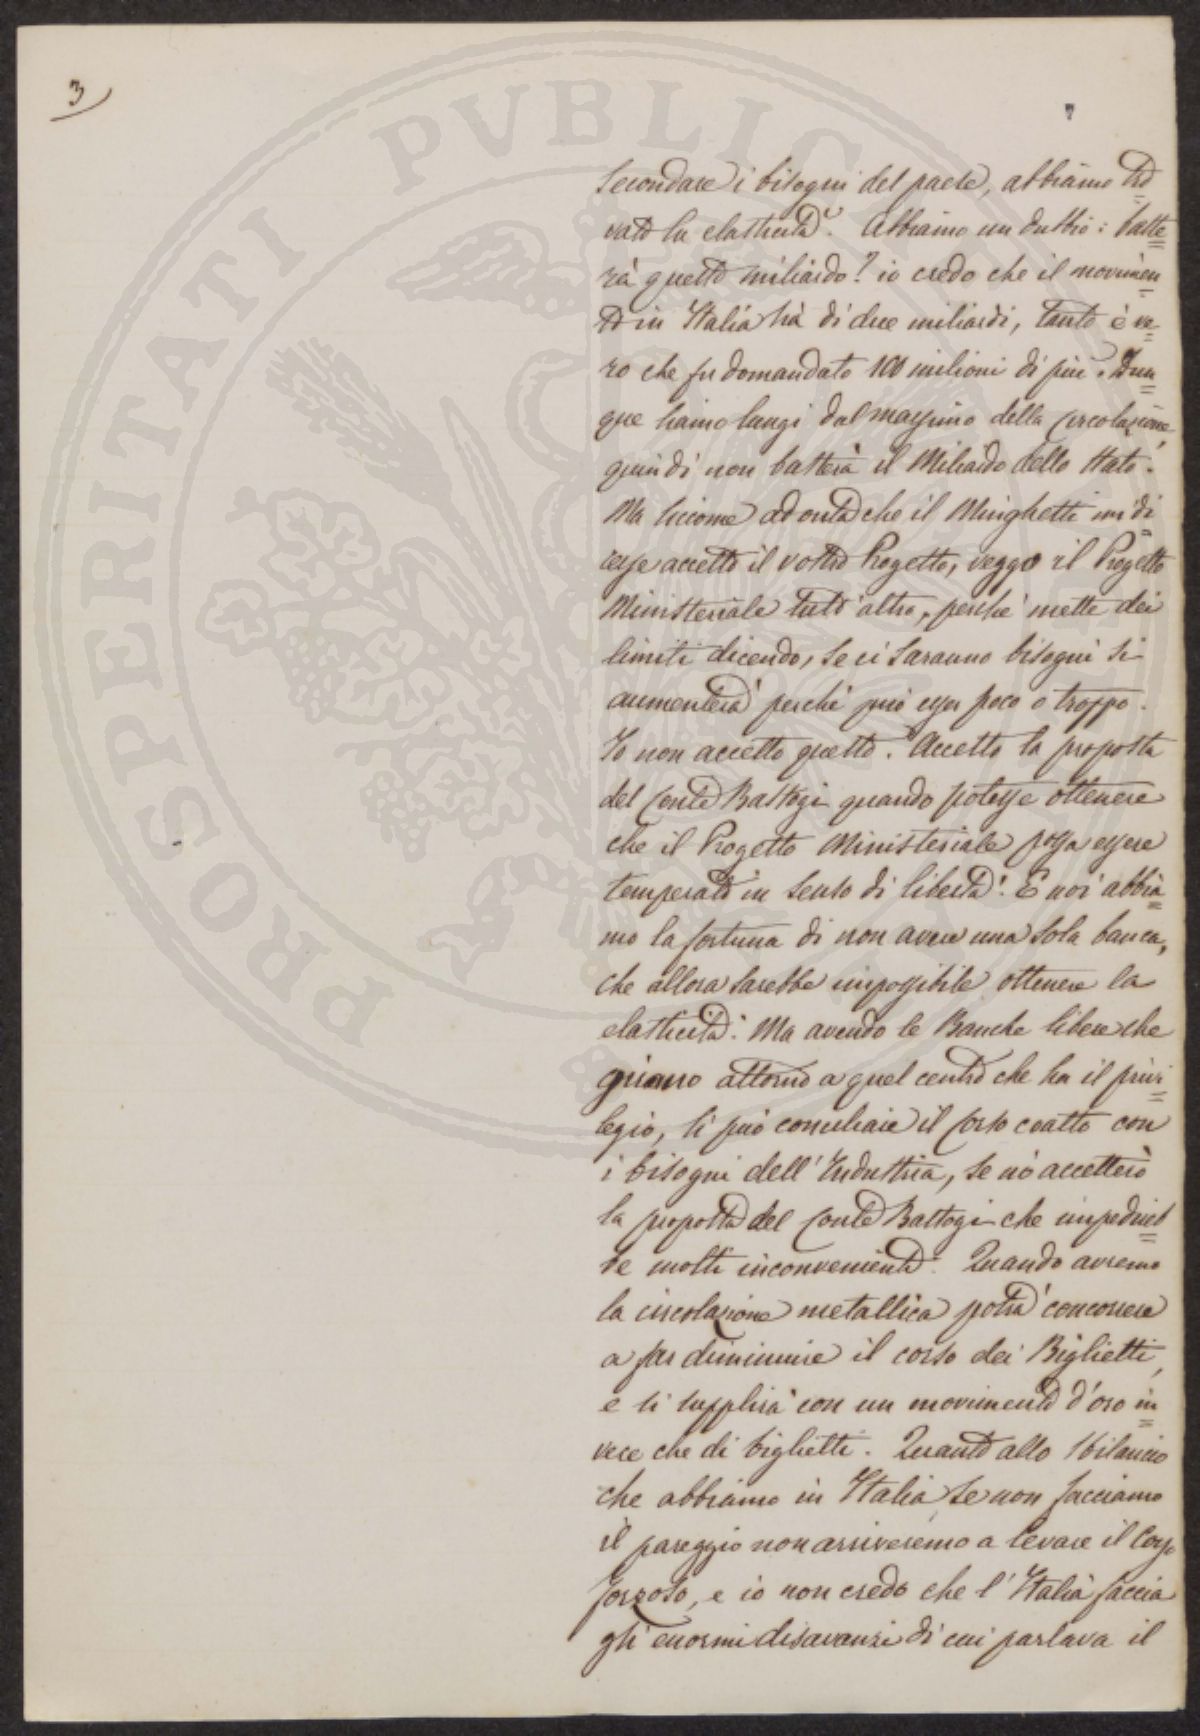 3
7
secondare i bisogni del paese, abbiamo tro
vato la elasticità. Abbiamo un dubbio: baste
rà questo miliardo? io credo che il movimen
to in Italia sia di due miliardi, tanto è ve
ro che fu domandato 100 milioni di più. Dun
que siamo lungi dal massimo della circolazione,
quindi non basterà il Miliardo dello Stato.
Ma siccome ad onta che il Minghetti mi di
cesse accetto il vostro Progetto, veggo il Progetto
Ministeriale tutt'altro, perchè mette dei
limiti dicendo, se ci saranno bisogni si
aumenterà perchè può esser poco o troppo.
Io non accetto questo. Accetto la proposta
del Conte Bastogi quando potesse ottenere
che il Progetto Ministeriale possa essere
temperato in senso di libertà. E noi abbia
mo la fortuna di non avere una sola banca,
che allora sarebbe impossibile ottenere la
elasticità. Ma avendo le Banche libere che
girano attorno a quel centro che ha il privi
legio, si può conciliare il corso coatto con
i bisogni dell'Industria, se nò accetterò
la proposta del Conte Bastogi che impedireb
be molti inconvenienti. Quando avremo
la circolazione metallica potrà concorrere
a far diminuire il corso dei Biglietti,
e si supplirà con un movimento d'oro in
vece che di biglietti. Quanto allo sbilancio
che abbiamo in Italia se non facciamo
il pareggio non arriveremo a levare il Corso
forzoso, e io non credo che l'Italia faccia
gli enormi disavanzi di cui parlava il
PROSPERITATI PVBLIC